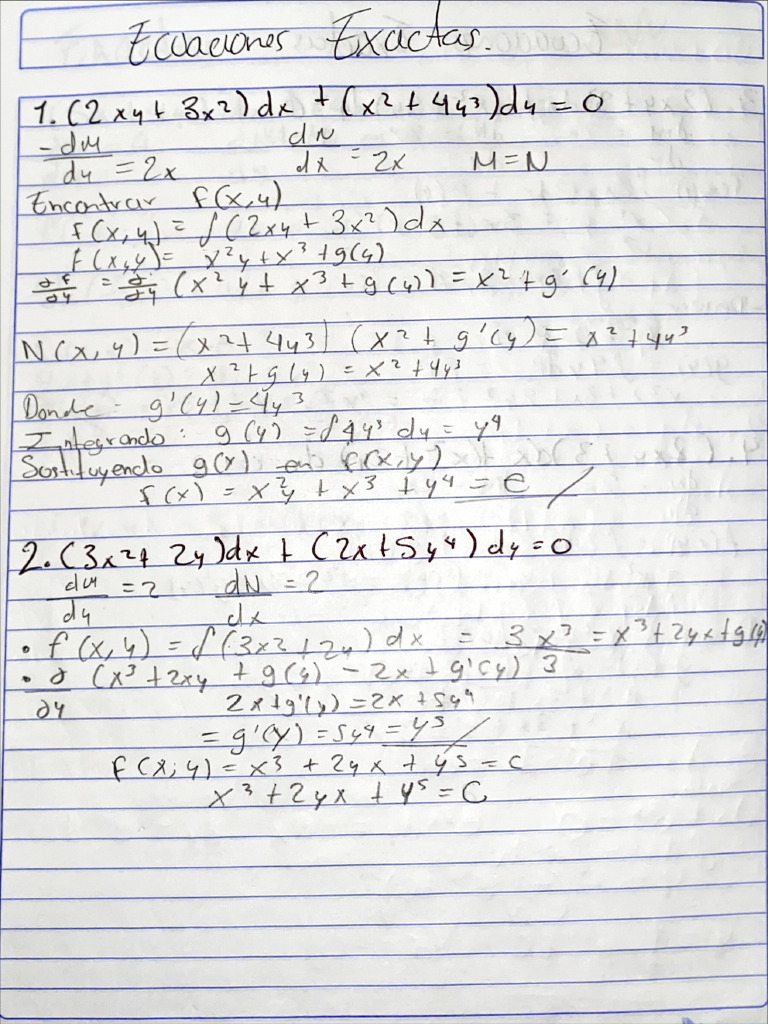 Ecuaciones Exactas.
1. (2xy + 3x²)dx + (x² + 4y³)dy = 0
-dM/dy = 2x dN/dx = 2x M = N
Encontrar f(x,y)
f(x,y) = ∫(2xy + 3x²)dx
f(x,y) = x²y + x³ + g(y)
∂f/∂y = ∂/∂y (x²y + x³ + g(y)) = x² + g'(y)
N(x,y) = (x² + 4y³) (x² + g'(y) = x² + 4y³
x² + g(y) = x² + 4y³
Donde: g'(y) = 4y³
Integrando: g(y) = ∫4y³ dy = y⁴
Sustituyendo g(y) en f(x,y)
f(x) = x²y + x³ + y⁴ = C
2. (3x² + 2y)dx + (2x + 5y⁴)dy = 0
dM/dy = 2 dN/dx = 2
• f(x,y) = ∫(3x² + 2y)dx = 3x³/3 = x³ + 2yx + g(y)
• ∂/∂y (x³ + 2xy + g(y) - 2x + g'(y)
2x + g'(y) = 2x + 5y⁴
= g'(y) = 5y⁴ = y⁵
f(x,y) = x³ + 2yx + y⁵ = C
x³ + 2yx + y⁵ = C